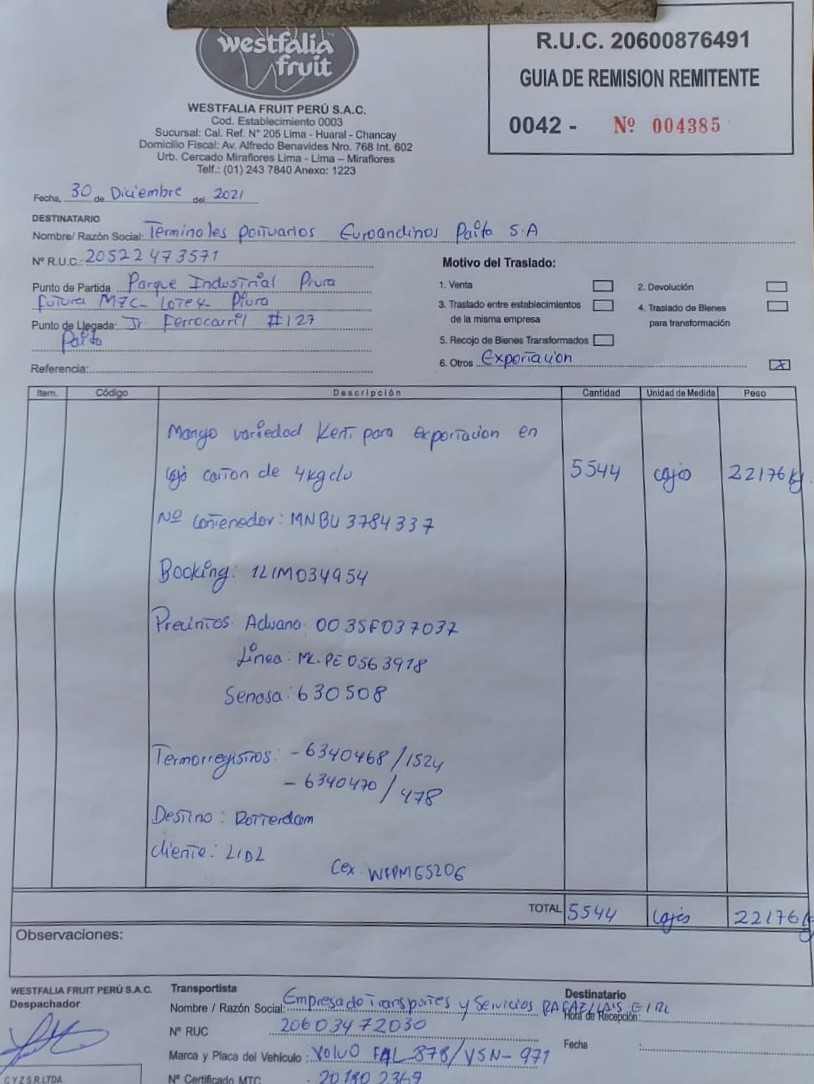 westfalia
fruit
WESTFALIA FRUIT PERÚ S.A.C.
Cod. Establecimiento 0003
Sucursal: Cal. Ref. N° 205 Lima - Huaral - Chancay
Domicilio Fiscal: Av. Alfredo Benavides Nro. 768 Int. 602
Urb. Cercado Miraflores Lima - Lima – Miraflores
Telf.: (01) 243 7840 Anexo: 1223
R.U.C. 20600876491
GUIA DE REMISION REMITENTE
0042 - Nº 004385
Fecha, 30 de Diciembre del 2021
DESTINATARIO
Nombre/ Razón Social: Terminales portuarios Euroandinos Paita S.A
Nº R.U.C.: 20522473571
Punto de Partida Parque Industrial Piura
futura M7C- Lote 4 Piura
Punto de Llegada: Jr. Ferrocarril #127
Paita
Referencia:
Motivo del Traslado:
1. Venta
2. Devolución
3. Traslado entre establecimientos
de la misma empresa
4. Traslado de Bienes
para transformación
5. Recojo de Bienes Transformados
6. Otros Exportacion X
Item. Código Descripción Cantidad Unidad de Medida Peso
Mango variedad Kent para exportacion en
caja carton de 4kg c/u 5544 cajas 22176 kg.
Nº contenedor: MNBU 3784337
Booking: 1LIM034954
Precintos: Aduana: 0035F037037
Linea: ML-PE0563978
Senasa: 630508
Termorregistros: - 6340468/1524
- 6340470/478
Destino: Rotterdam
Cliente: LIDL
Cex. WFPMG5206
TOTAL 5544 cajas 22176 kg
Observaciones:
WESTFALIA FRUIT PERÚ S.A.C.
Despachador
Transportista
Nombre / Razón Social: Empresa de Transportes y Servicios EIRL
Nº RUC 20603472030
Marca y Placa del Vehículo: Volvo FAL 878/VSN-971
Nº Certificado MTC : 20180 2369
Destinatario
Hora de Recepción:
Fecha :
CYZ S.R.LTDA